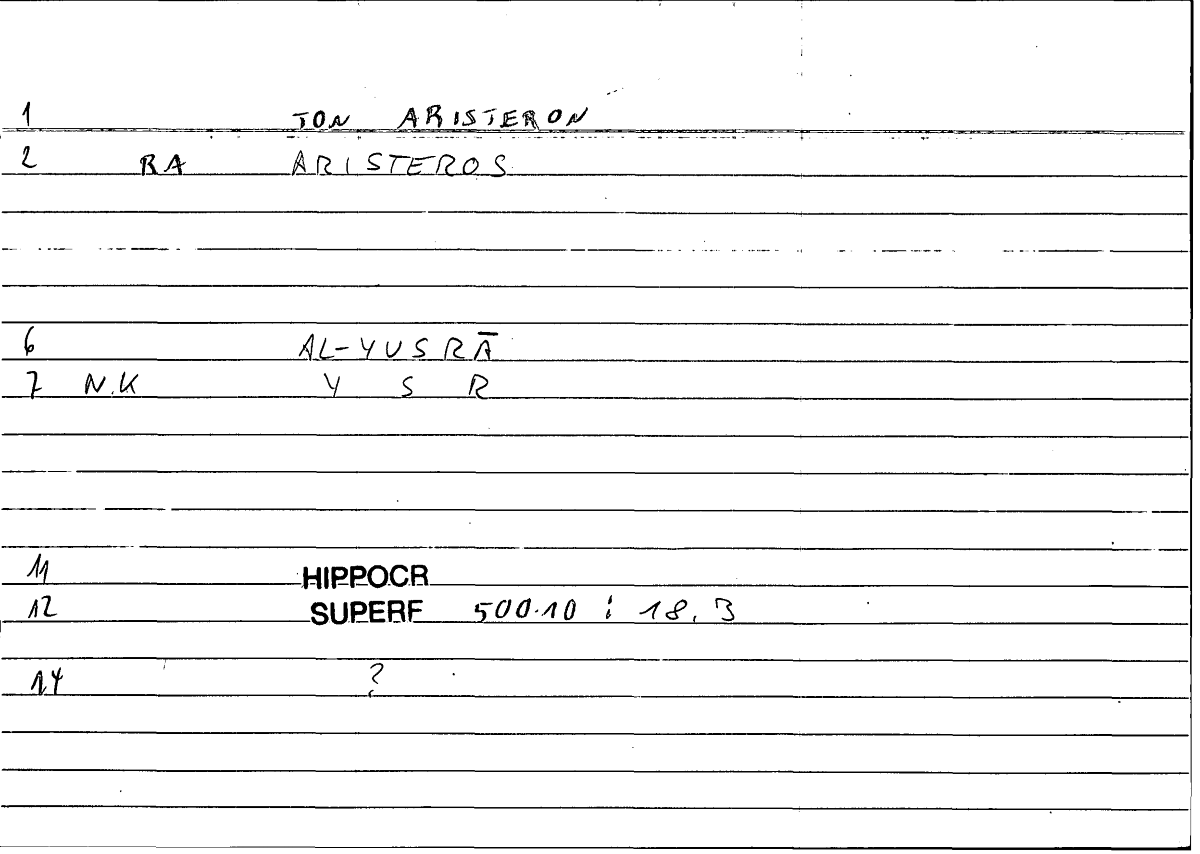 1 TON ARISTERON
2 RA ARISTEROS
6 AL-YUSRĀ
7 N.K Y S R
11 HIPPOCR
12 SUPERF 500.10 : 18.3
14 ?